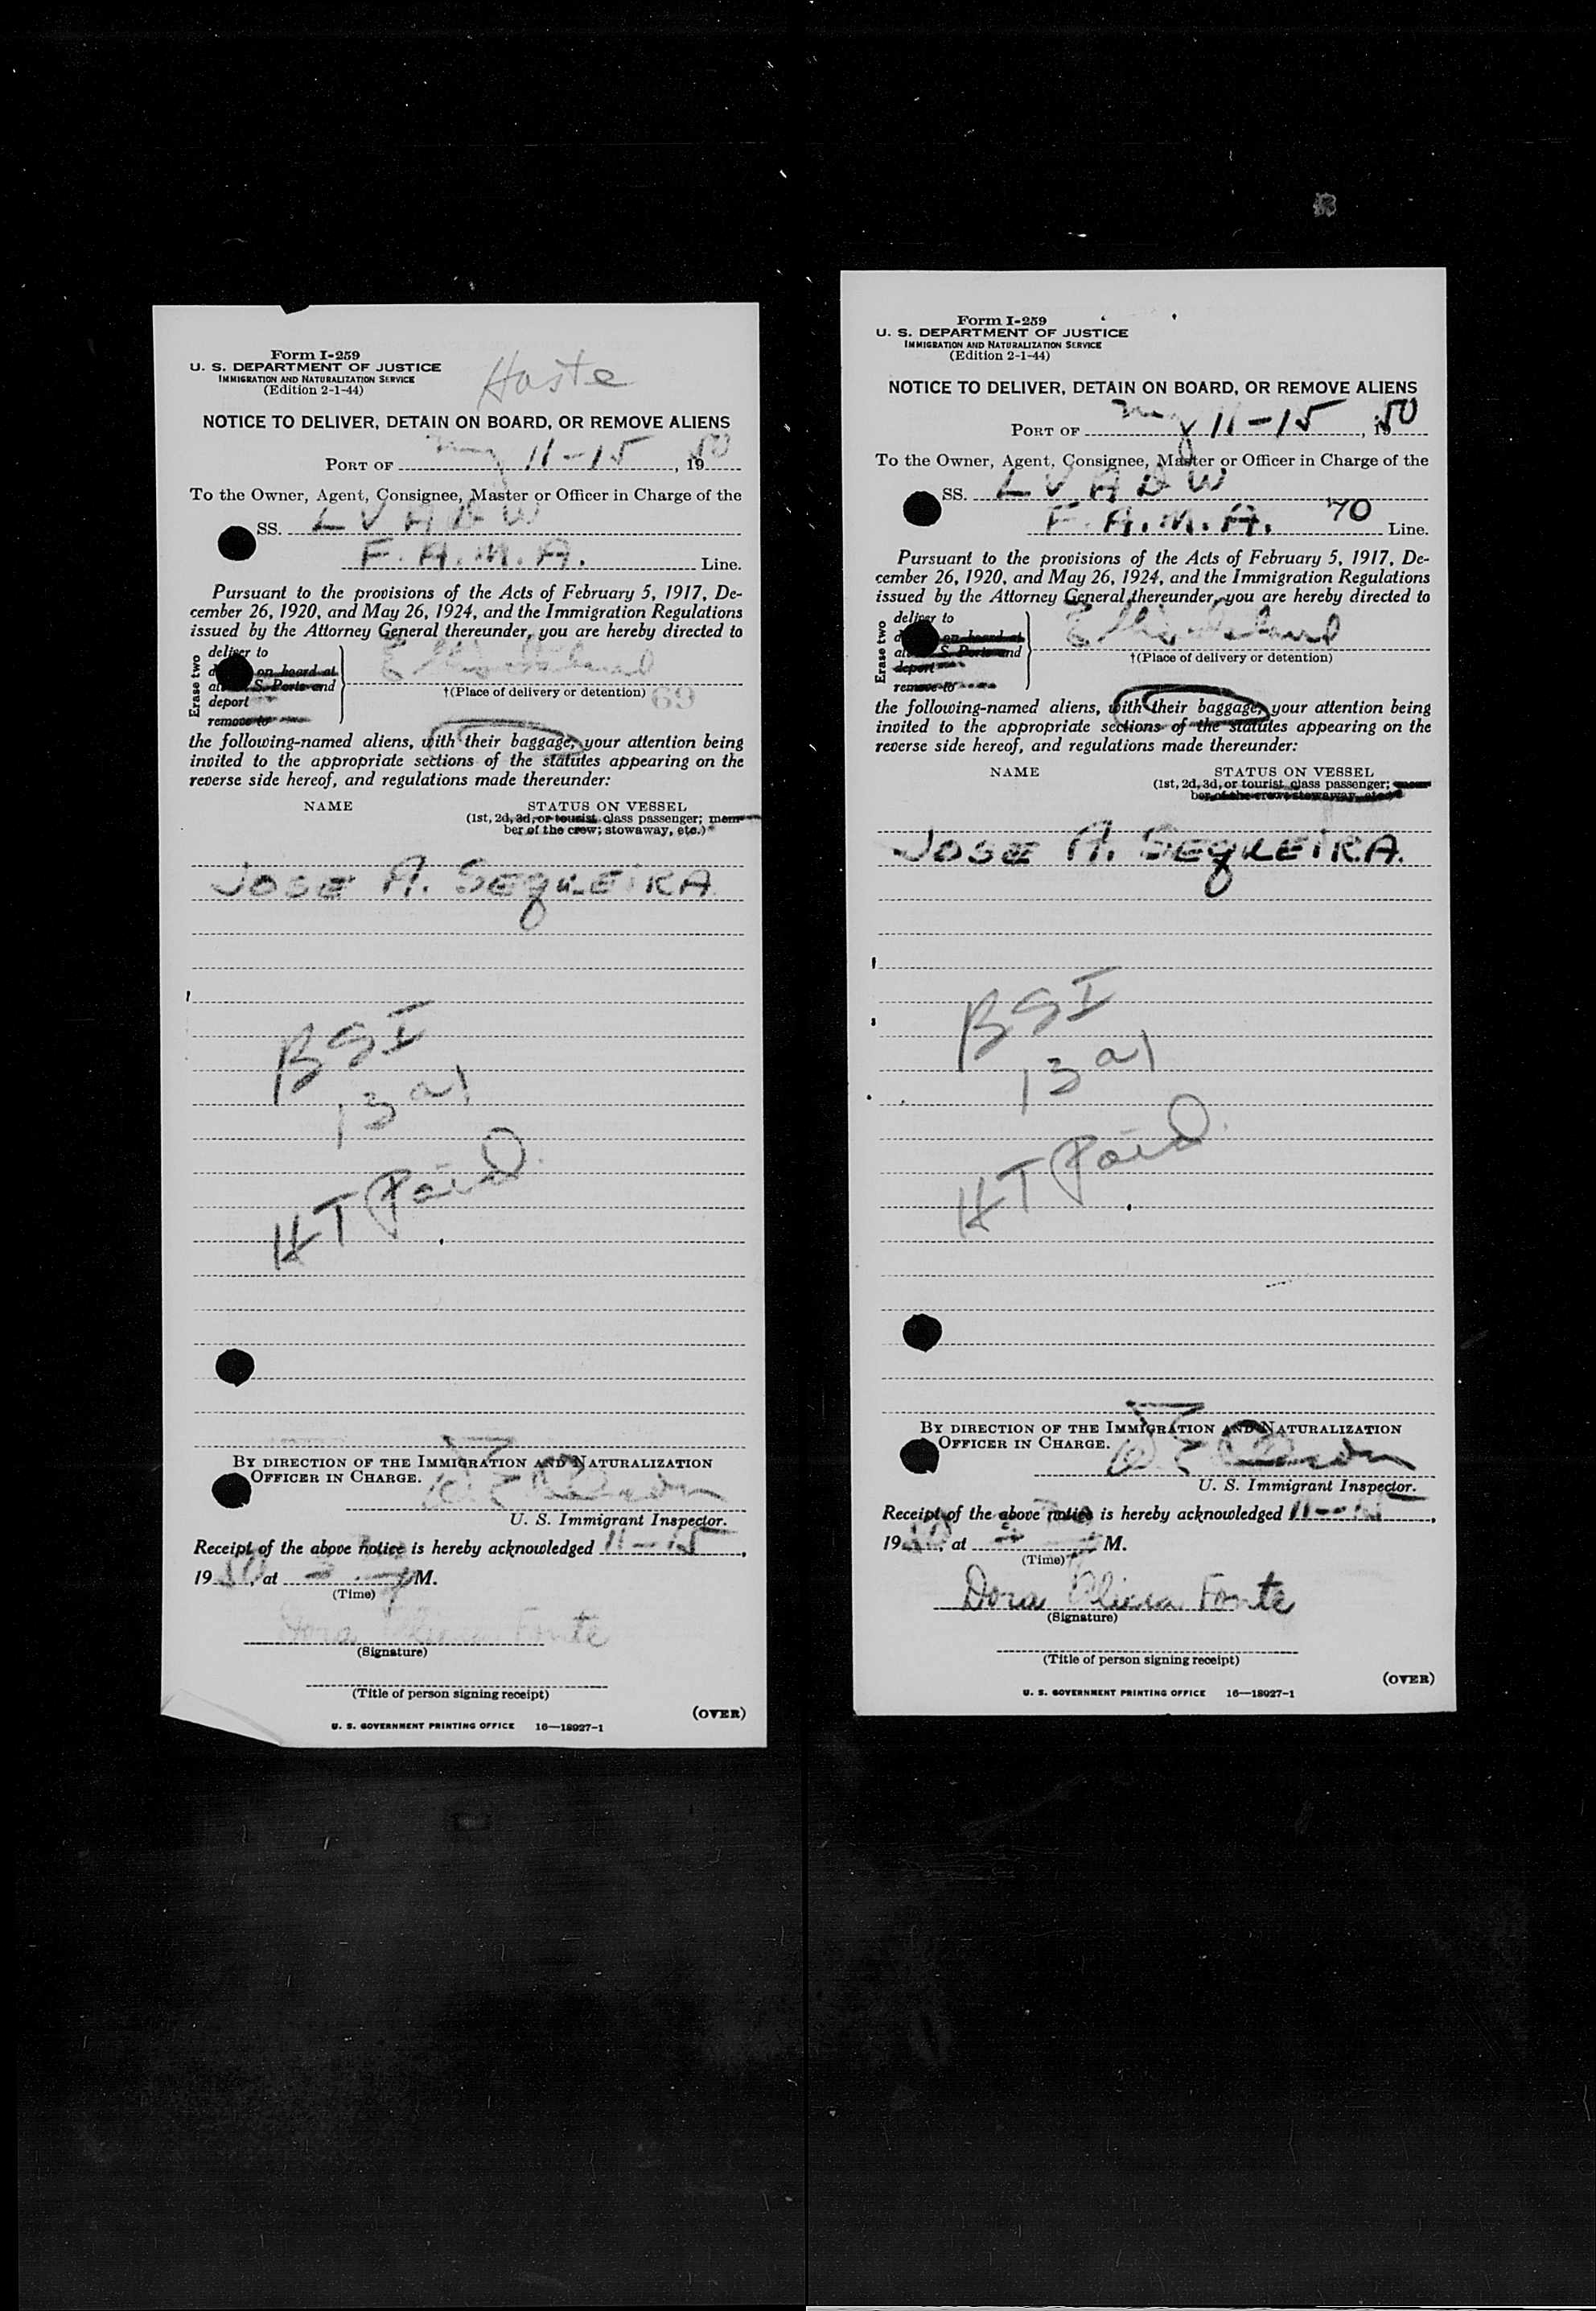 Form I-259
U. S. DEPARTMENT OF JUSTICE
IMMIGRATION AND NATURALIZATION SERVICE
(Edition 2-1-44)
Haste
NOTICE TO DELIVER, DETAIN ON BOARD, OR REMOVE ALIENS
PORT OF 11-15, 1950
To the Owner, Agent, Consignee, Master or Officer in Charge of the
SS. LV ADW
F.A.M.A. Line.
Pursuant to the provisions of the Acts of February 5, 1917, De-
cember 26, 1920, and May 26, 1924, and the Immigration Regulations
issued by the Attorney General thereunder, you are hereby directed to
Erase two
deliver to
on board at
S. Ports and
deport
remove to
Ellis Island
†(Place of delivery or detention) 69
the following-named aliens, with their baggage, your attention being
invited to the appropriate sections of the statutes appearing on the
reverse side hereof, and regulations made thereunder:
NAME STATUS ON VESSEL
(1st, 2d, 3d, or tourist class passenger; mem-
ber of the crew; stowaway, etc.)
JOSE A. SEQUEIRA
BSI
13 a1
HT Paid
BY DIRECTION OF THE IMMIGRATION AND NATURALIZATION
OFFICER IN CHARGE.
U. S. Immigrant Inspector.
Receipt of the above notice is hereby acknowledged 11-15,
1950, at M.
(Time)
Dora Alicia Fonte
(Signature)
(Title of person signing receipt)
(OVER)
U. S. GOVERNMENT PRINTING OFFICE 16—18927-1
Form I-259
U. S. DEPARTMENT OF JUSTICE
IMMIGRATION AND NATURALIZATION SERVICE
(Edition 2-1-44)
NOTICE TO DELIVER, DETAIN ON BOARD, OR REMOVE ALIENS
PORT OF 11-15, 1950
To the Owner, Agent, Consignee, Master or Officer in Charge of the
SS. LV ADW
F.A.M.A. 70 Line.
Pursuant to the provisions of the Acts of February 5, 1917, De-
cember 26, 1920, and May 26, 1924, and the Immigration Regulations
issued by the Attorney General thereunder, you are hereby directed to
Erase two
deliver to
on board at
S. Ports and
deport
remove to
Ellis Island
†(Place of delivery or detention)
the following-named aliens, with their baggage, your attention being
invited to the appropriate sections of the statutes appearing on the
reverse side hereof, and regulations made thereunder:
NAME STATUS ON VESSEL
(1st, 2d, 3d, or tourist class passenger; mem-
ber of the crew; stowaway, etc.)
JOSE A. SEQUEIRA
BSI
13 a1
HT Paid
BY DIRECTION OF THE IMMIGRATION AND NATURALIZATION
OFFICER IN CHARGE.
U. S. Immigrant Inspector.
Receipt of the above notice is hereby acknowledged 11-15,
1950, at M.
(Time)
Dora Alicia Fonte
(Signature)
(Title of person signing receipt)
(OVER)
U. S. GOVERNMENT PRINTING OFFICE 16—18927-1